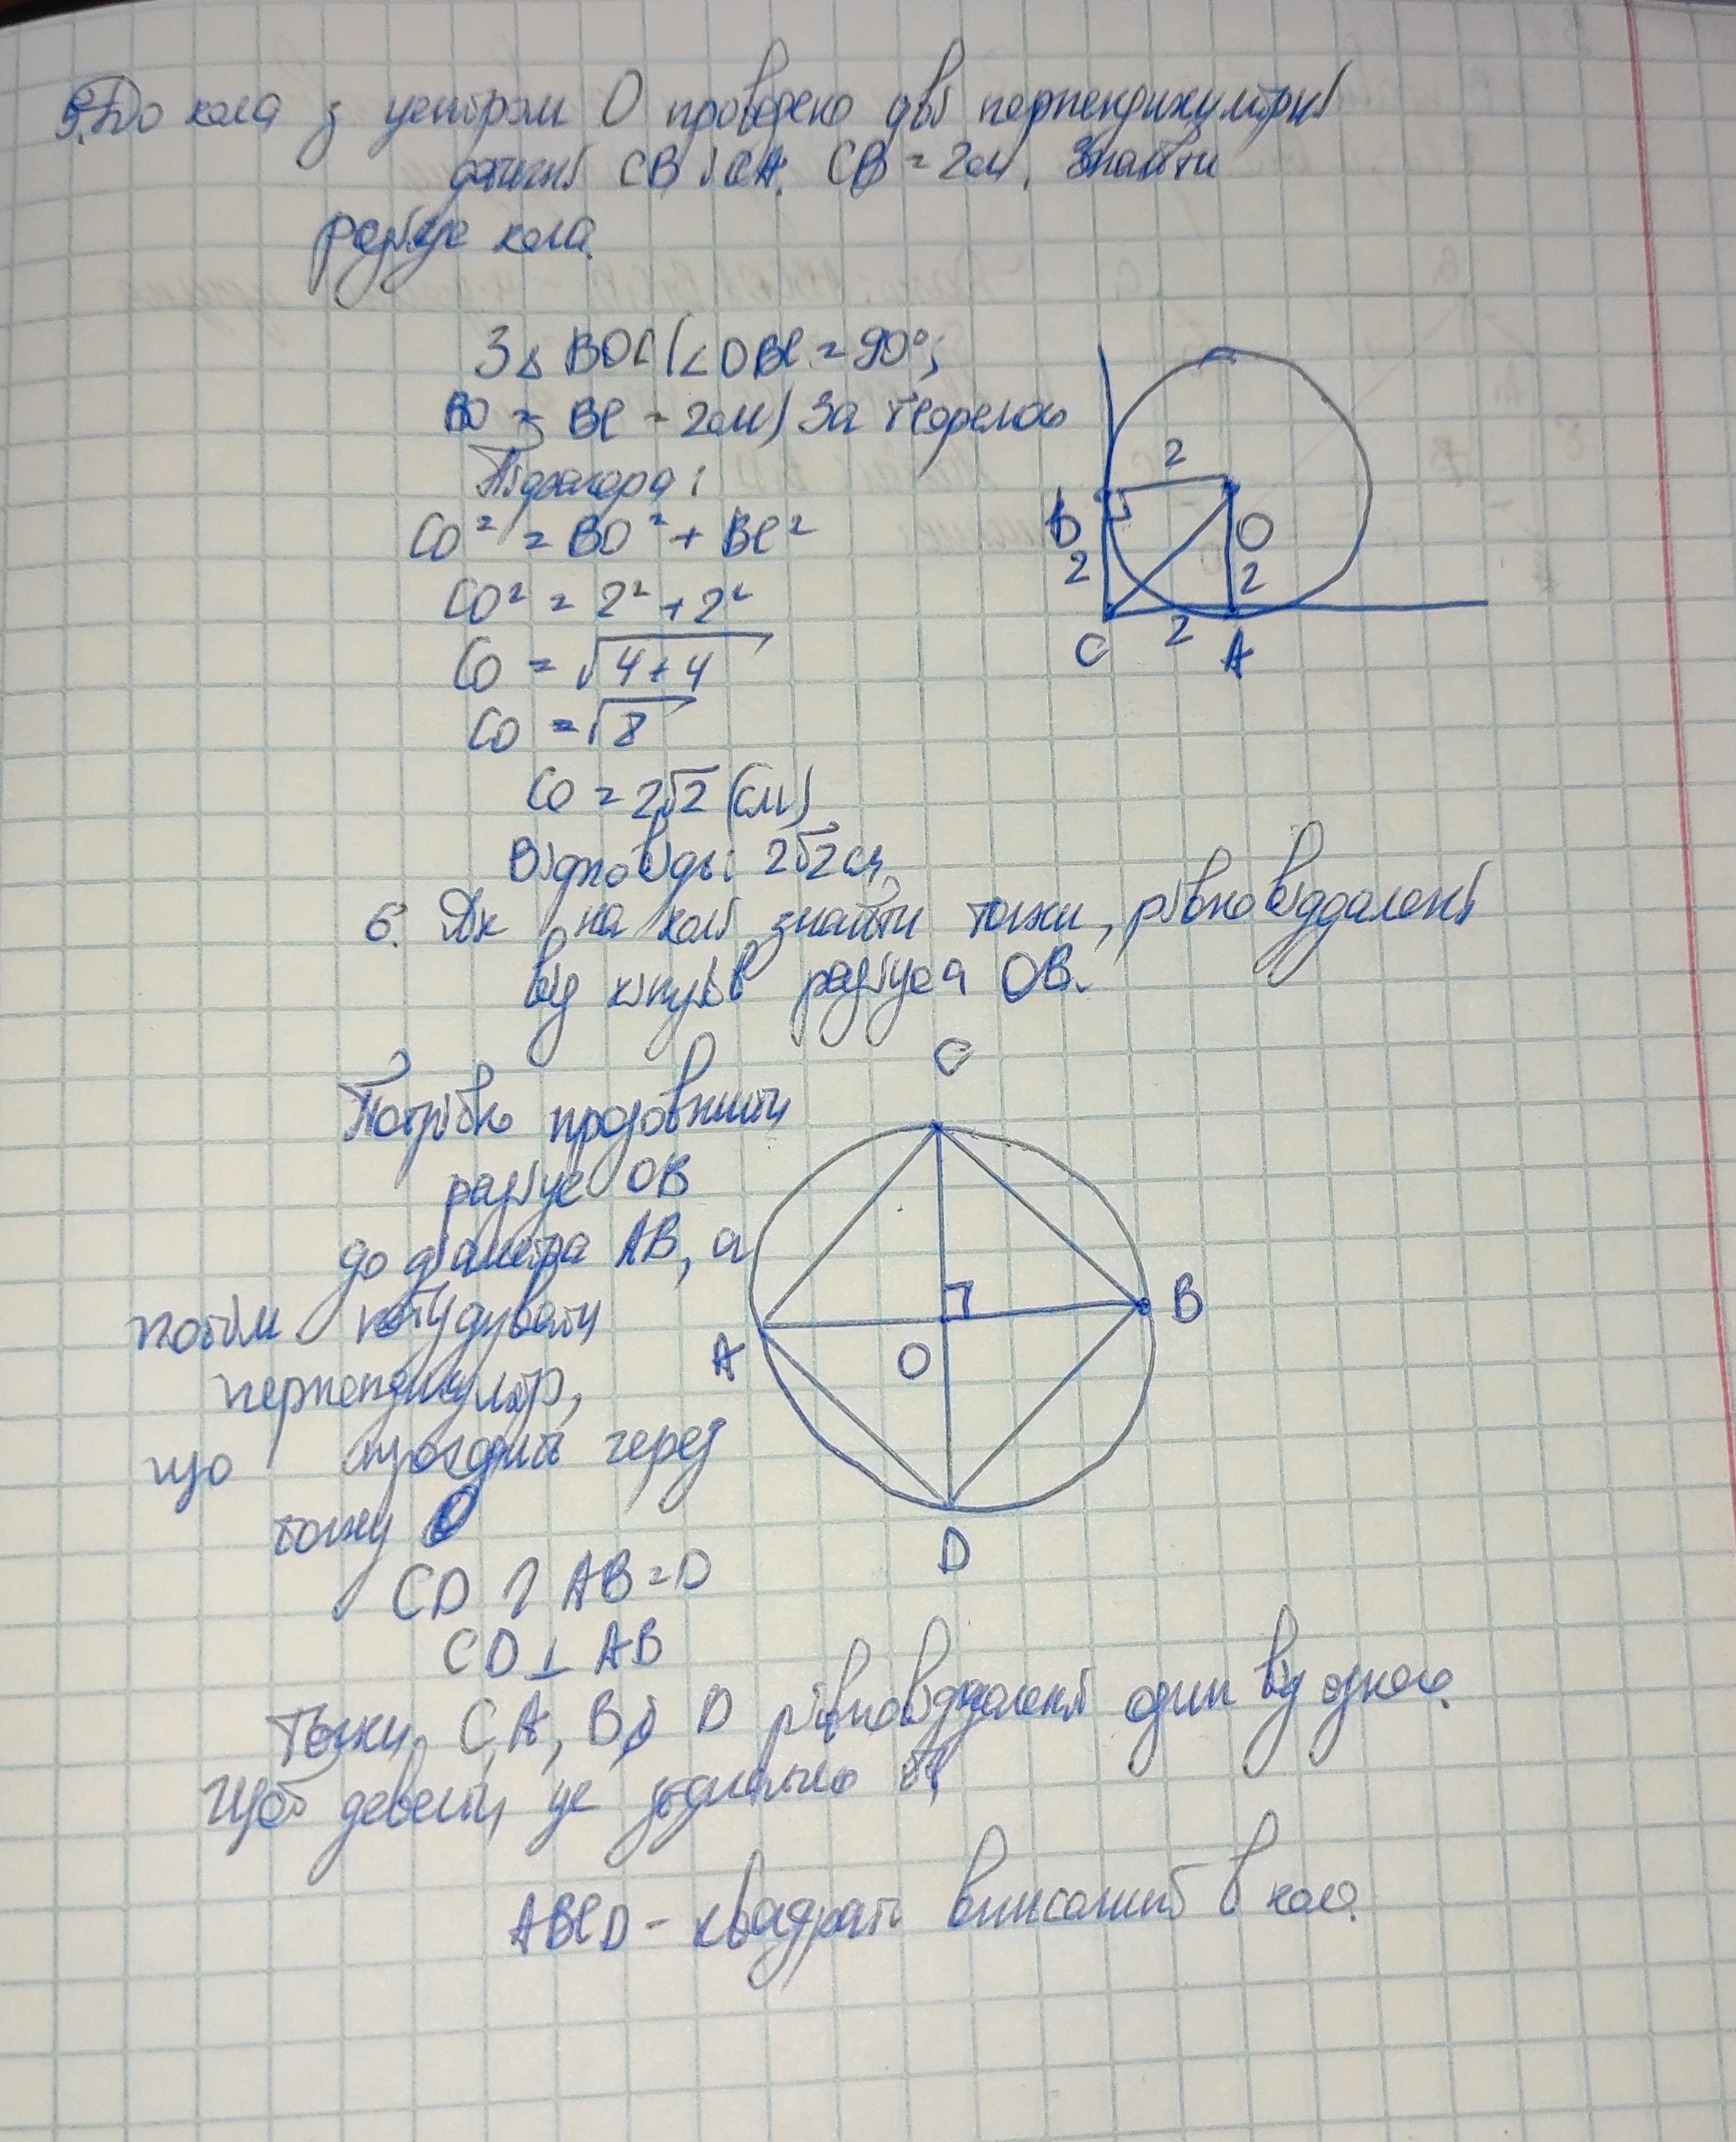 5. До кола з центром О проведено дві перпендикулярні
дотичні CB і CA. CB = 2см. Знайти
радіус кола.
З △ BOC (∠OBC = 90°;
BO = BC = 2см) За теоремою
Піфагора:
CO² = BO² + BC²
CO² = 2² + 2²
CO = √4+4
CO = √8
CO = 2√2 (см)
Відповідь: 2√2 см
2
B
O
2
2
C
2
A
6. Як на колі знайти точки, рівновіддалені
від кінців радіуса OB.
Потрібно продовжити
радіус OB
до діаметра AB, а
потім побудувати
перпендикуляр,
що проходить через
точку O
CD ∩ AB = D
CD ⊥ AB
C
A
O
B
D
Точки C, A, B і D рівновіддалені один від одного.
Щоб довести це
ABCD - квадрат вписаний в коло.